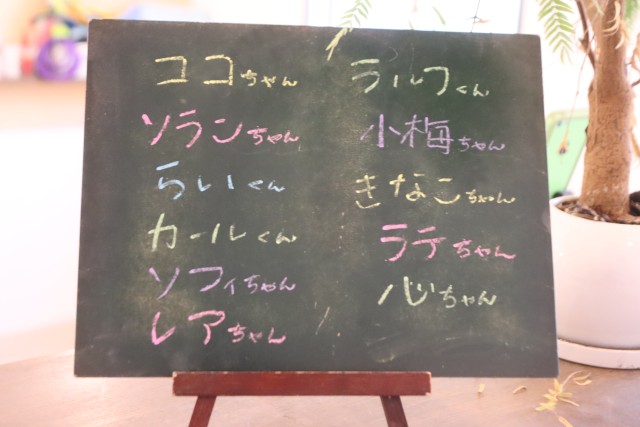 ココちゃん
ソランちゃん
らいくん
カールくん
ソフィちゃん
レアちゃん
ラルフくん
小梅ちゃん
きなこちゃん
ラテちゃん
心ちゃん